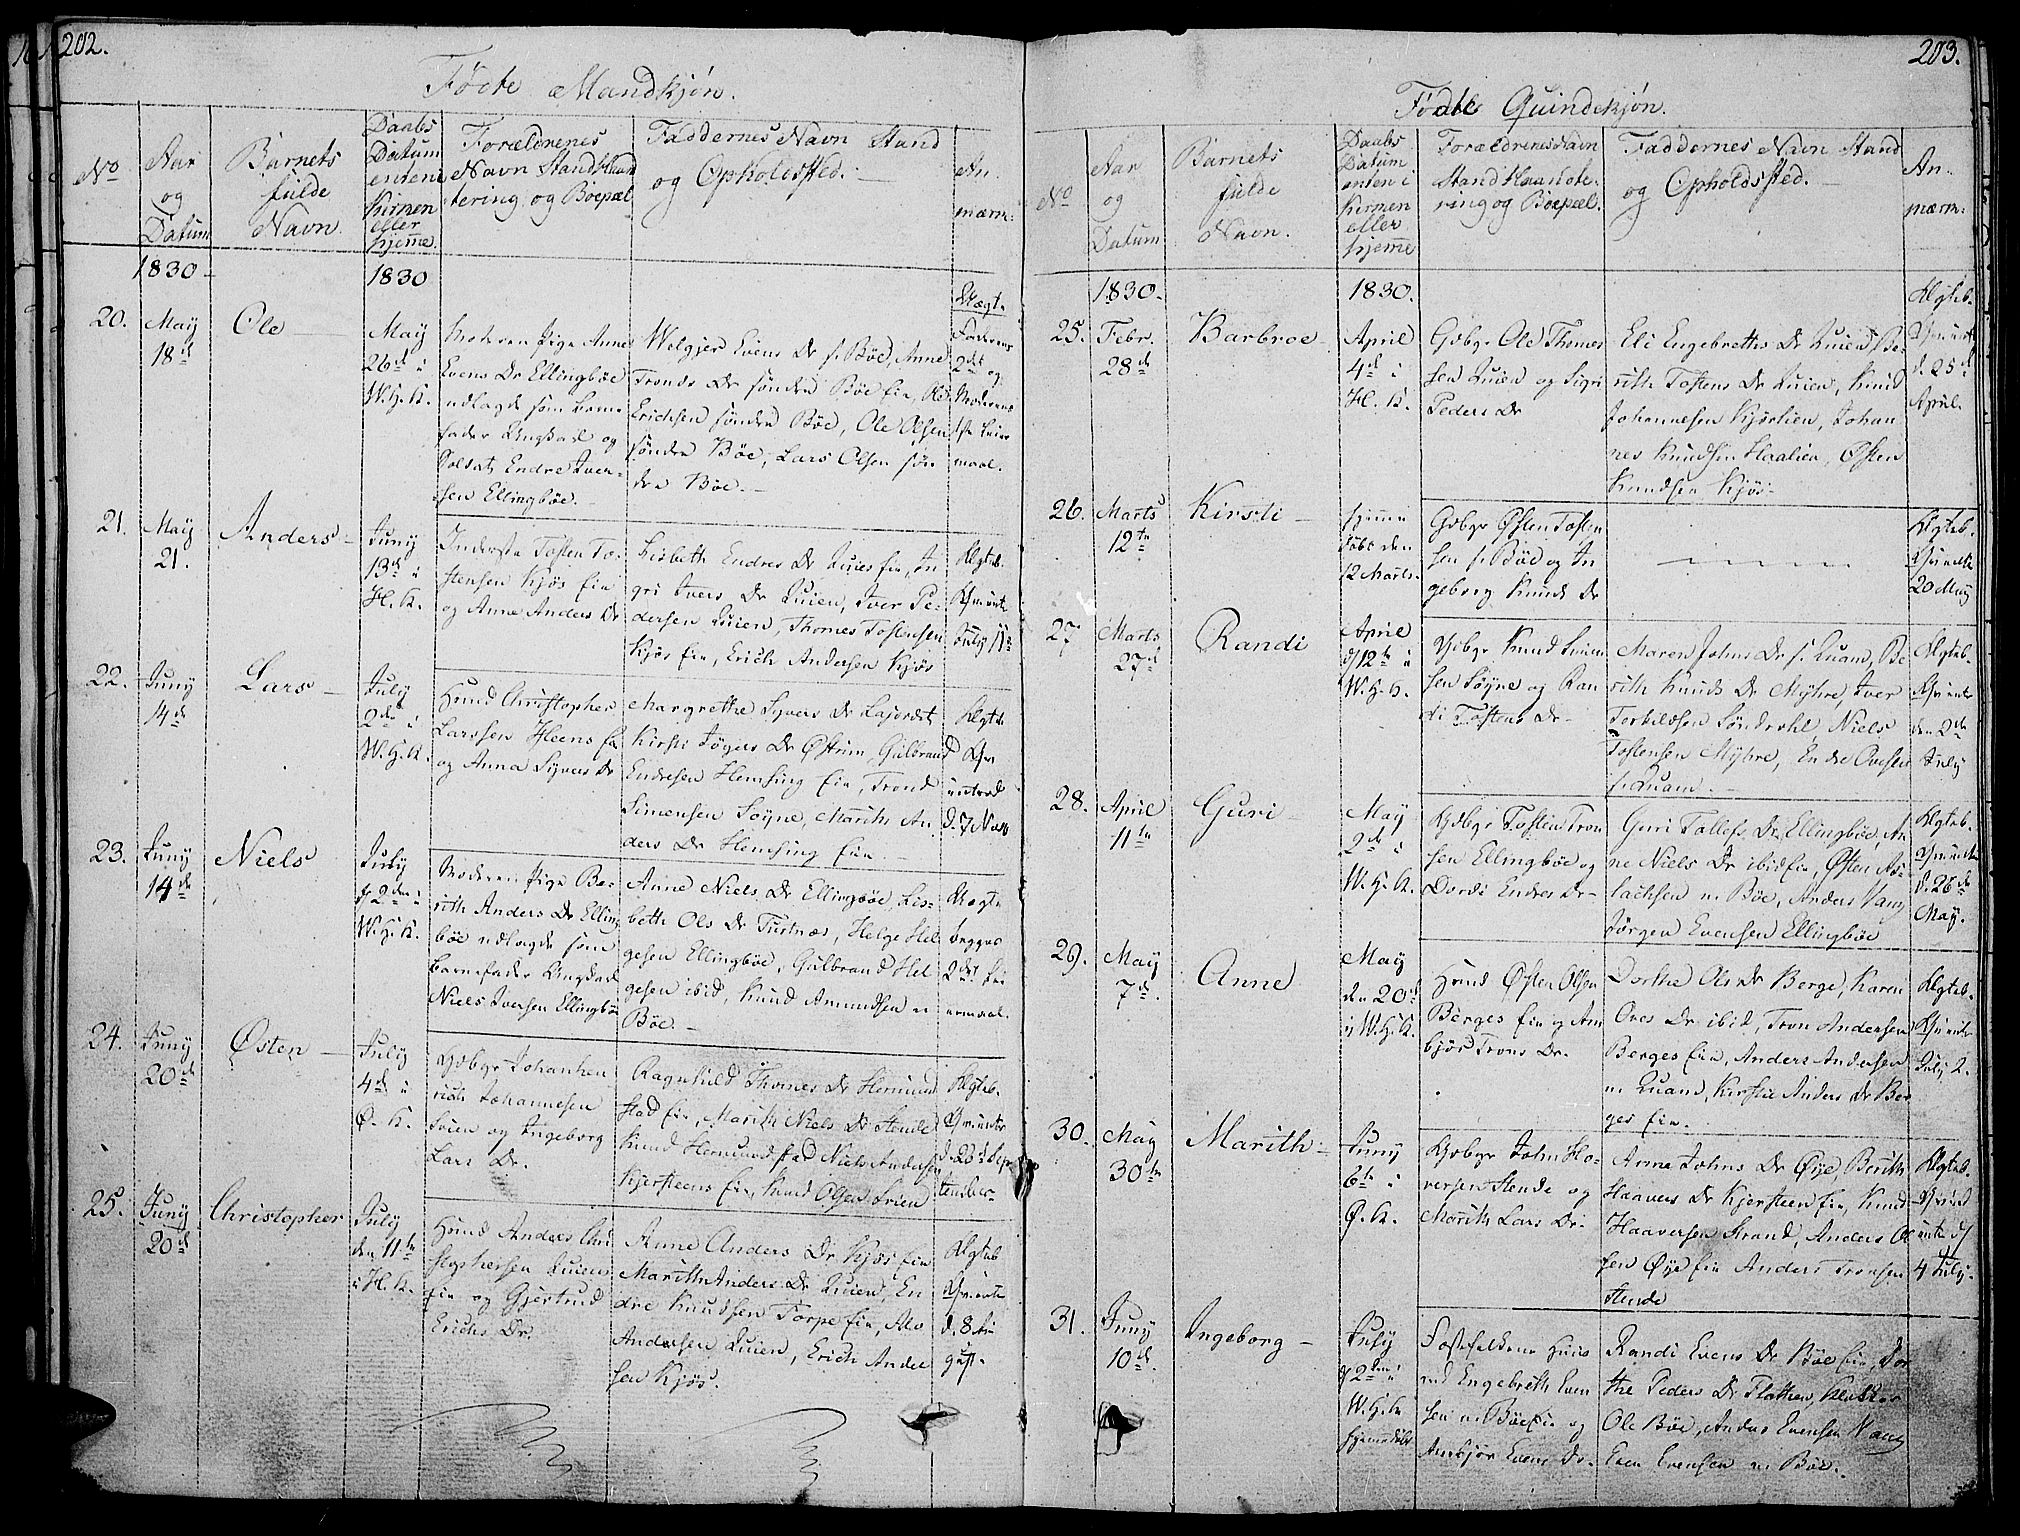 202.
Fødte Mandkjøn.
No
Aar
og
Datum
Barnets
fulde
Navn
Daabs
Datum
enten i
Kirken
eller
hjem̅e
Forældrenes
Navn Stand Haan
tering og Boepæl
Faddernes Navn Stand
og Opholdssted.
An.
mærm:
1830
1830
20.
May
18d
Ole
May
26d i
W.H.K.
Moderen Pige Anne
Evens Dr Ellingbøe
udlagde som barne
fader Ungkarl og
Soldat Endre Iver-
sen Ellingbøe.
Welgjer Evens Dr s. Bøe, Anne
Tronds Dr søndre Bøe Eie, Ole
Erichsen søndre Bøe, Ole Olsen
søndre Bøe, Lars Olsen søn
dre Bøe.
Uægt.
Faderens
2det og
Moderens
1ste Leier
maal.
21.
May
21.
Anders
Juny
13d i
H.K.
Inderste Tosten To-
stensen Kjøs Eie
og Anne Anders Dr
Lisbeth Endres Dr Quies Eie, In
gri Ivers Dr Quien, Iver Pe-
dersen Quien, Thomes Tostensen
Kjøs Eie, Erich Andersen Kjøs
22.
Juny
14d
Lars
July
2den i
W.H.K.
Huusmd Christopher
Larssen Heens Eie
og Anna Syvers Dr
Margrethe Syvers Dr
Kirsti Jøgers Dr Østrim, Gulbrand
Endresen Hemsing Eie, Trond
Simensen Søyne, Marith An
ders Dr Hemsing Eie.
23.
Juny
14de
Niels
July
d 2den i
W.H.K.
Moderen Pige Be-
rith Anders Dr Elling
bøe udlagde som
Barnefader Ungkarl
Niels Iversen Ellingbøe
Anne Niels Dr Ellingbøe, Lis-
beth Ols Dr Turtnæs, Helge Hel
gesen Ellingbøe, Gulbrand Hel
gesen ibid, Knud Amundsen n
Bøe.
Uægte
begges
2det Lei
ermaal.
24.
Juny
20d
Østen
July
4de i
Ø.K.
Gdbgr Johanhen-
rich Johannesen
Loien og Ingeborg
Lars Dr.
Ragnhild Thomes Dr Hermund
stad Eie, Marith Niels Dr Hende
Knud Hermundstad Niels Andersen
Kjersteens Eie, Knud Olsen Loien
25.
Juny
20d
Christopher
July
den 11te
i H.K.
Huusmd Anders Chri
stophersen Quiens
Eie og Gjertrud
Erichs Dr.
Anne Anders Dr Kjøs Eie
Marith Anders Dr Quien, En
dre Knudsen Torpe Eie,
Andersen Quien, Erich Ander
sen Kjøs.
203.
Fødte Quindekjøn.
No
Aar
og
Datum
Barnets
fulde
Navn.
Daabs
Datum
enten i
Kirken
eller
hjem̅e
Forældrenes Navn
Stand Haandte-
ring og Boepæl.
Faddernes Navn Stand
og Opholdssted.
An-
mærm:
1830.
1830.
25.
Febr.
28de
Barbroe
April
4d i
H.K.
Gdbgr Ole Thomes
sen Quien og Sigri
Peders Dr
Eli Engebreths Dr Quien, Be-
rith Tostens Dr Quien, Knud
Johannesen Kjørlien, Johan
nes Knudsen Haalien, Østen
Knudsen Kjøs.
Ægteb.
Qvinde
d. 25d
April.
26.
Marts
12te
Kirsti
hjemme
døbt den
12 Marts.
Gdbgr Østen Tosten
sen s. Bøe og In
geborg Knuds Dr
20 May
27
Marts
27d
Randi
April
d 12te i
W.H.K.
Gdbgr Knud
sen Søyne og Ran
di Tostens Dr
Maren Johns Dr s. Quam, Be
rith Knuds Dr Myhre, Iver
Torkildsen Søndrohl, Niels
Tostensen Myhre, Endre Ovesen
s. Quam.
den 2de
July
28.
April
11te
Guri
May
2de i
W.H.K.
Gdbgr Tosten Tron
sen Ellingbøe og
Dordi Endres Dr
Guri Tollefs Dr Ellingbøe, An
ne Niels Dr ibid Eie, Østen As-
lachsen n. Bøe, Anders Vang
Jørgen Evensen Ellingbøe
d. 26de
May.
29.
May
7de.
Anne
May
den 20d
i W.H.K.
Huusmd Østen Olsen
Berges Eie og Am
bjør Trons Dr.
Dorthe Ols Dr Berge, Karen
Oves Dr ibid, Tron Andersen
Berges Eie, Anders Andersen
n. Quam, Kirstie Anders Dr Ber
ges Eie.
July 2.
30.
May
30te
Marith
Juny
6te i
Ø.K.
Gdbgr John Ho-
versen Hende og
Marith Lars Dr
Anne Johns Dr Øye, Berith
Haavers Dr Kjersteen Eie, Knud
Haaversen Strand, Anders Ol
sen Øye Eie Anders Tronsen
Hende
4 July.
31.
Juny
10d.
Ingeborg
July
d 2den i
W.H.K.
hjemmedøbt
Fostefolkene Huus
md Engebreth Even
sen n. Bøe Eie og
Ambjør Evens Dr.
Randi Evens Dr Bøe Eie, Dor
the Peders Dr Flathen, Klokker
Ole Bøe, Anders Evensen Vang
Even Evensen n. Bøe.